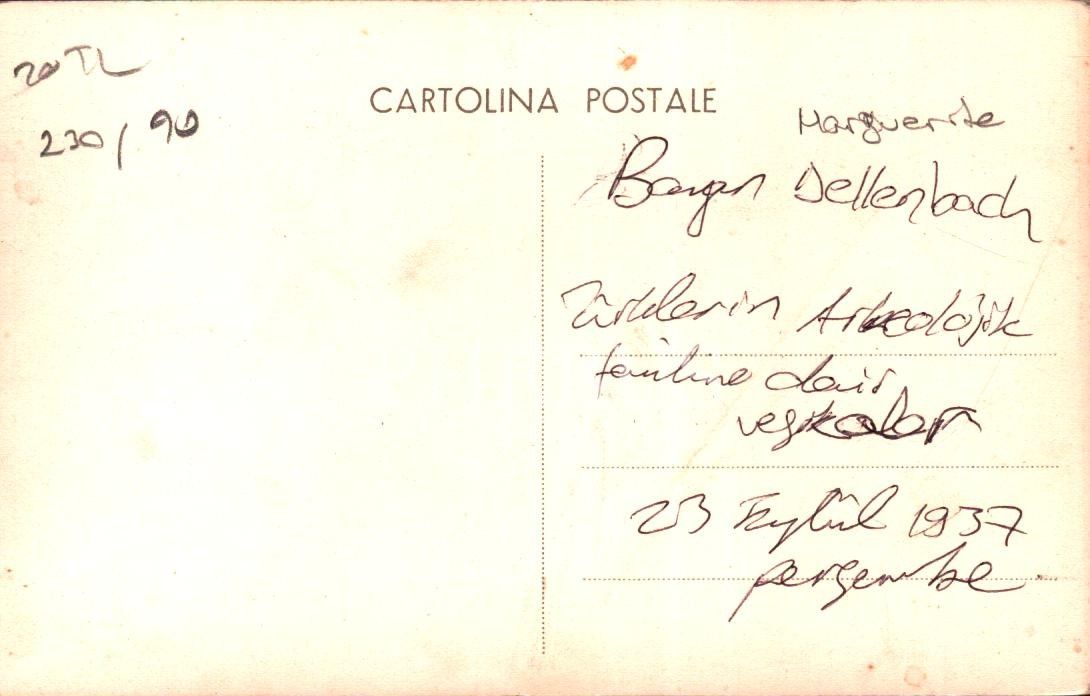 20 TL
230 / 90
CARTOLINA POSTALE
Marguerite
Bayan Dellenbach
Türklerin Arkeolojik
dair
23 Eylül 1937
perşembe